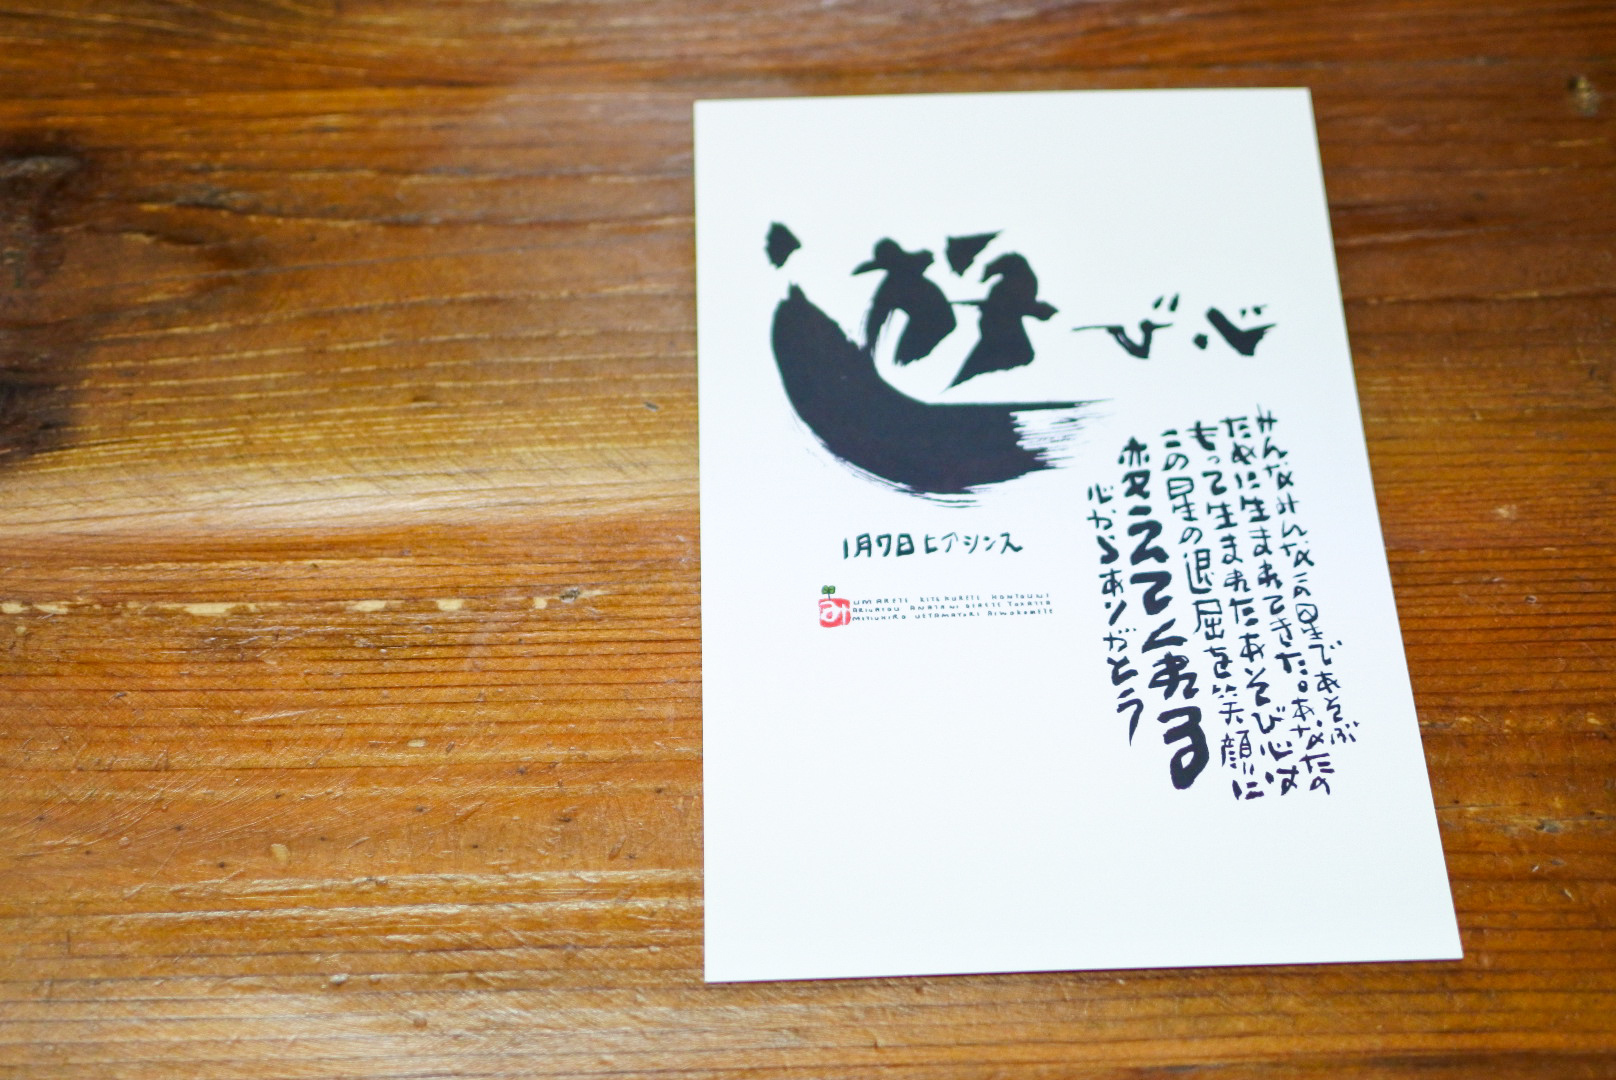 遊び心
みんなみんなこの星であそぶ
ために生まれてきた。あなたの
もって生まれたあそび心は
この星の退屈を笑顔に
変えてくれる
心からありがとう
1月7日ヒアシンス
み
UMARETE KITE KURETE HONTOUNI
ARIGATOU ANATA NI DEAETE YOKATTA